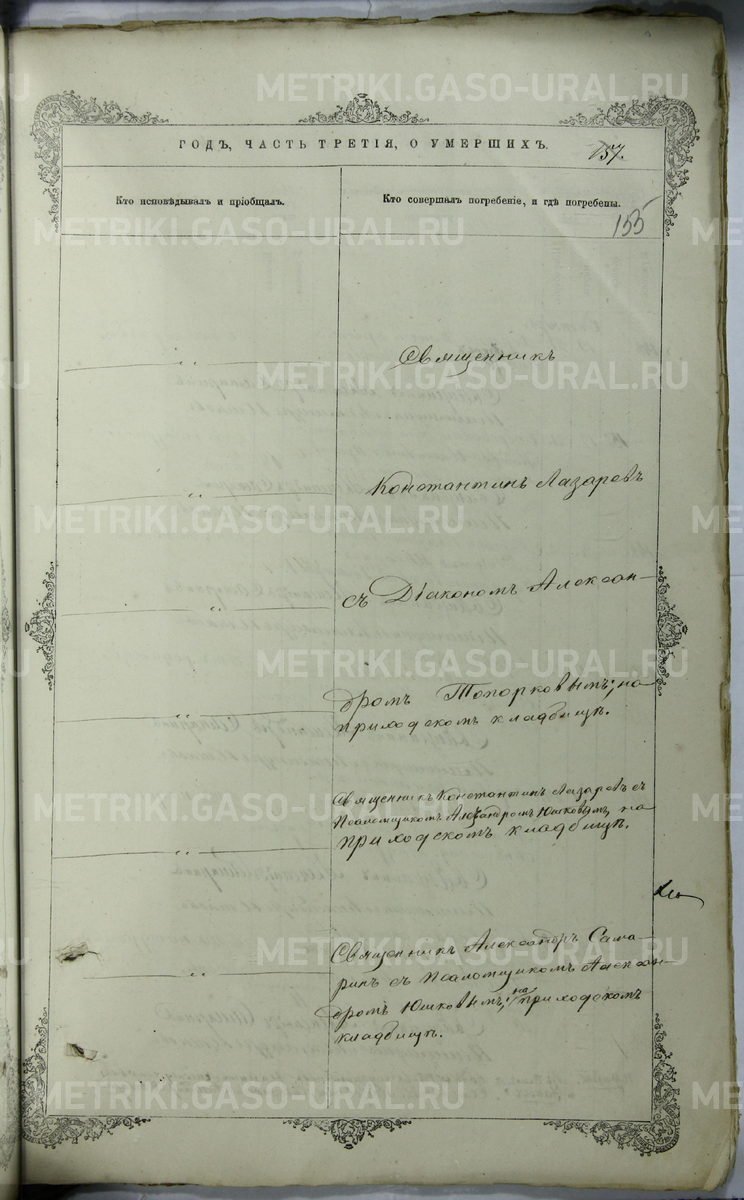 METRIKI.GASO-URAL.RU
ГОДЪ, ЧАСТЬ ТРЕТІЯ, О УМЕРШИХЪ.
157.
Кто исповѣдывалъ и пріобщалъ.
Кто совершалъ погребеніе, и гдѣ погребены.
155
Священникъ
Константинъ Лазаревъ
съ Діакономъ Алексан-
дромъ Топорковымъ; на
приходскомъ кладбищѣ.
Священникъ Константинъ Лазаревъ съ
Псаломщикомъ Александромъ Юшковымъ, на
приходскомъ кладбищѣ.
Священникъ Александръ Сама-
ринъ съ Псаломщикомъ Алексан-
дромъ Юшковымъ; на приходскомъ
кладбищѣ.